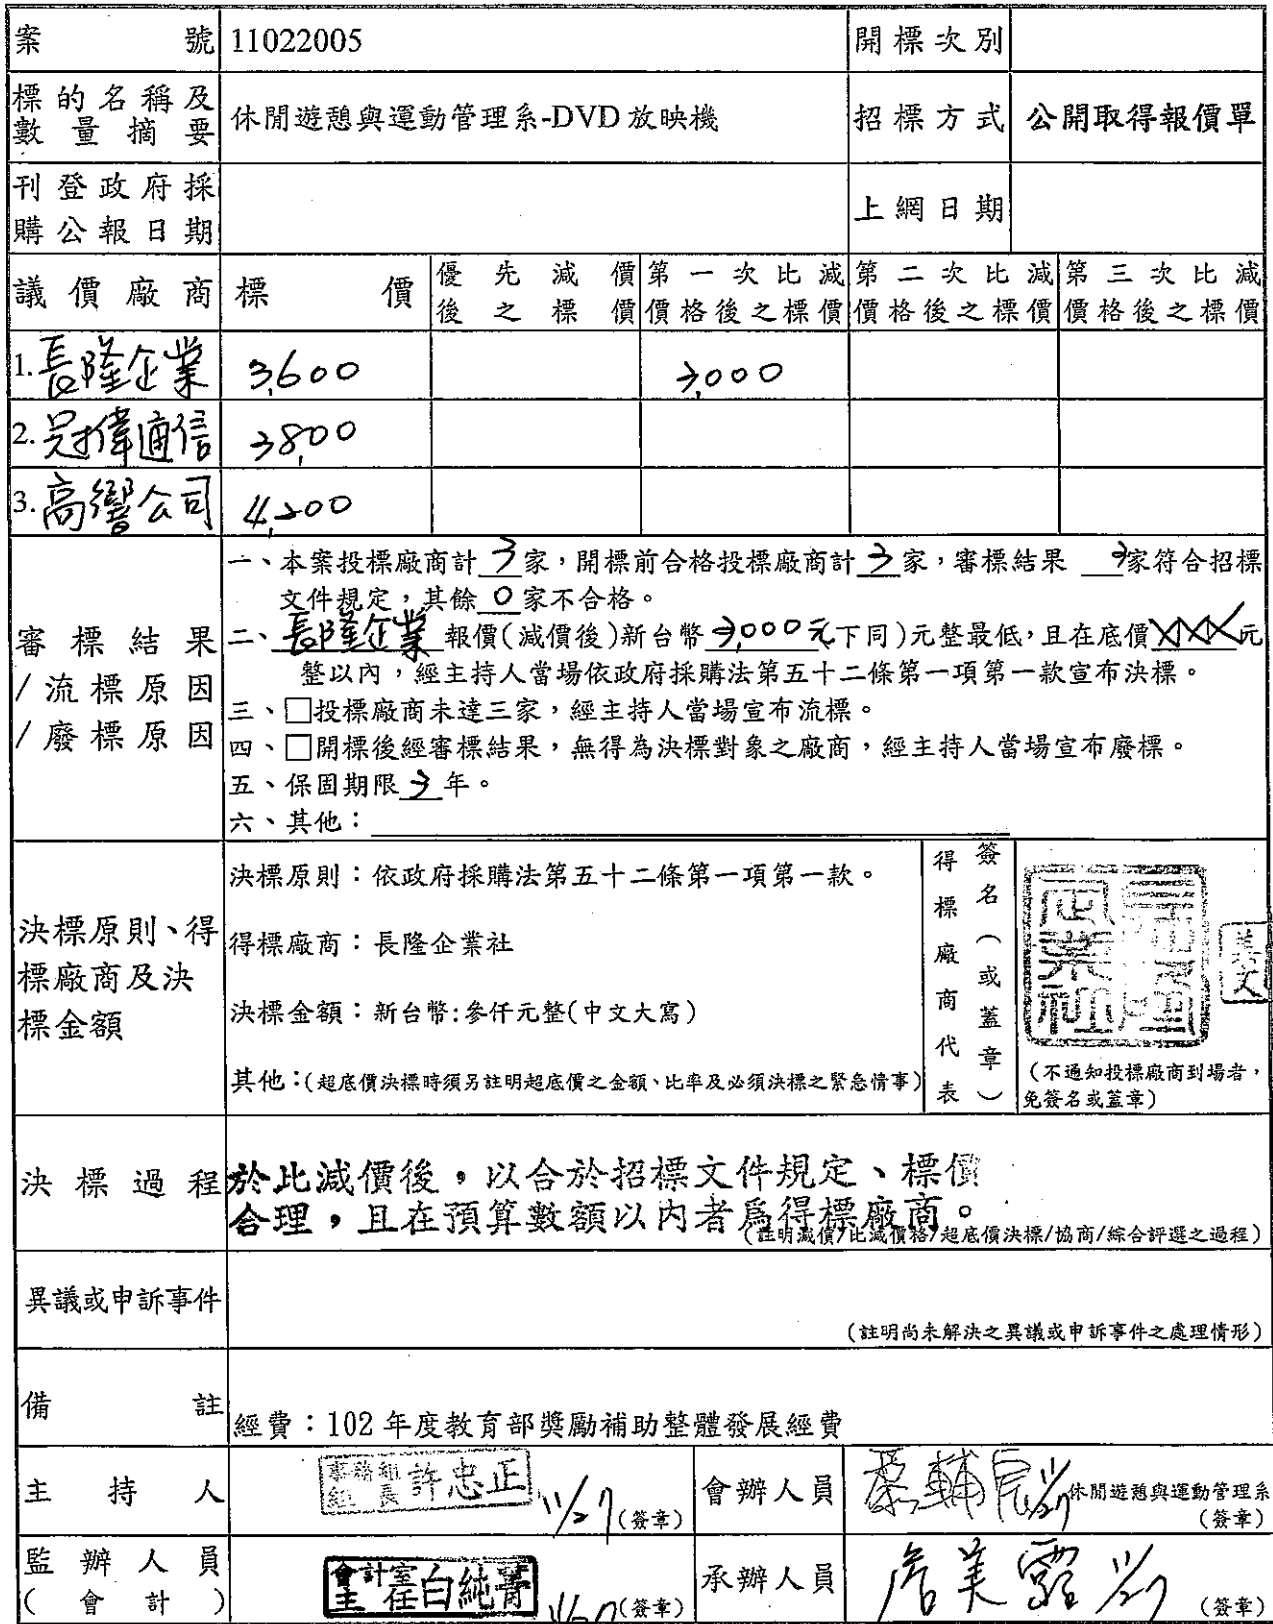 案號 11022005 開標次別
標的名稱及數量摘要 休閒遊憩與運動管理系-DVD放映機 招標方式 公開取得報價單
刊登政府採購公報日期 上網日期
議價廠商 標價 優先減價後之標價 第一次比減價格後之標價 第二次比減價格後之標價 第三次比減價格後之標價
1.長隆企業 3,600 3,000
2.冠偉通信 3,800
3.高響公司 4,200
審標結果/流標原因/廢標原因
一、本案投標廠商計 3 家，開標前合格投標廠商計 3 家，審標結果 3 家符合招標
文件規定，其餘 0 家不合格。
二、長隆企業 報價(減價後)新台幣 3,000元(下同)元整最低，且在底價 元
整以內，經主持人當場依政府採購法第五十二條第一項第一款宣布決標。
三、□投標廠商未達三家，經主持人當場宣布流標。
四、□開標後經審標結果，無得為決標對象之廠商，經主持人當場宣布廢標。
五、保固期限 3 年。
六、其他：
決標原則、得標廠商及決標金額
決標原則：依政府採購法第五十二條第一項第一款。
得標廠商：長隆企業社
決標金額：新台幣:參仟元整(中文大寫)
其他：(超底價決標時須另註明超底價之金額、比率及必須決標之緊急情事)
得標廠商代表
簽名（或蓋章）
長隆企業社
(不通知投標廠商到場者，
免簽名或蓋章)
決標過程 於比減價後，以合於招標文件規定、標價
合理，且在預算數額以內者為得標廠商。
(註明減價/比減價格/超底價決標/協商/綜合評選之過程)
異議或申訴事件
(註明尚未解決之異議或申訴事件之處理情形)
備註 經費：102年度教育部獎勵補助整體發展經費
主持人 事務組組長 許忠正 11/27 (簽章) 會辦人員 輔 11/27 休閒遊憩與運動管理系
(簽章)
監辦人員(會計) 會計室主任 白純菁 11/27 (簽章) 承辦人員 詹美霞 11/27 (簽章)